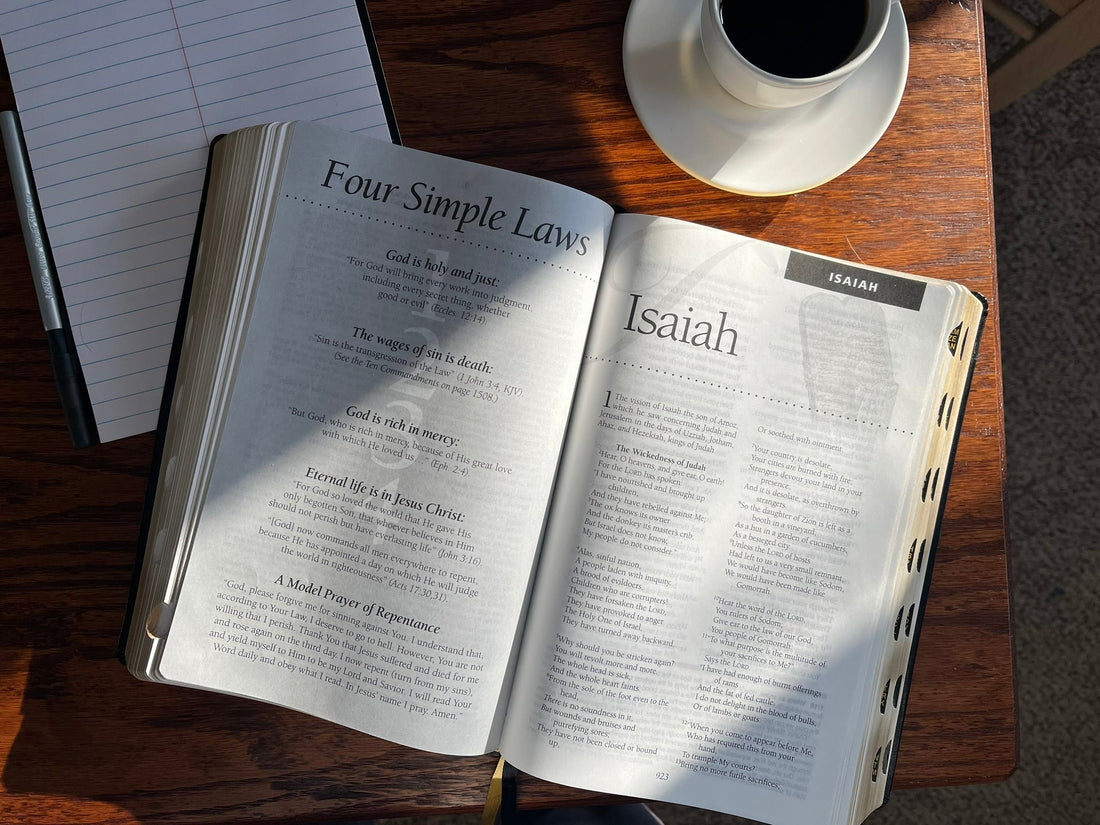 Four Simple Laws
God is holy and just:
"For God will bring every work into judgment,
including every secret thing, whether
good or evil" (Eccles. 12:14).
The wages of sin is death:
"Sin is the transgression of the Law" (1 John 3:4, KJV).
(See the Ten Commandments on page 1508.)
God is rich in mercy:
"But God, who is rich in mercy, because of His great love
with which He loved us . . ." (Eph. 2:4).
Eternal life is in Jesus Christ:
"For God so loved the world that He gave His
only begotten Son, that whoever believes in Him
should not perish but have everlasting life" (John 3:16).
"[God] now commands all men everywhere to repent,
because He has appointed a day on which He will judge
the world in righteousness" (Acts 17:30,31).
A Model Prayer of Repentance
"God, please forgive me for sinning against You. I understand that,
according to Your Law, I deserve to go to hell. However, You are not
willing that I perish. Thank You that Jesus suffered and died for me
and rose again on the third day. I now repent (turn from my sins),
and yield myself to Him to be my Lord and Savior. I will read Your
Word daily and obey what I read. In Jesus' name I pray. Amen."
ISAIAH
Isaiah
1 The vision of Isaiah the son of Amoz,
which he saw concerning Judah and
Jerusalem in the days of Uzziah, Jotham,
Ahaz, and Hezekiah, kings of Judah.
The Wickedness of Judah
2Hear, O heavens, and give ear, O earth!
For the LORD has spoken:
"I have nourished and brought up
children,
And they have rebelled against Me;
3The ox knows its owner
And the donkey its master's crib;
But Israel does not know,
My people do not consider."
4Alas, sinful nation,
A people laden with iniquity,
A brood of evildoers,
Children who are corrupters!
They have forsaken the LORD,
They have provoked to anger
The Holy One of Israel,
They have turned away backward.
5Why should you be stricken again?
You will revolt more and more.
The whole head is sick,
And the whole heart faints.
6From the sole of the foot even to the
head,
There is no soundness in it,
But wounds and bruises and
putrefying sores;
They have not been closed or bound
up,
Or soothed with ointment.
7Your country is desolate,
Your cities are burned with fire;
Strangers devour your land in your
presence;
And it is desolate, as overthrown by
strangers.
8So the daughter of Zion is left as a
booth in a vineyard,
As a hut in a garden of cucumbers,
As a besieged city.
9Unless the LORD of hosts
Had left to us a very small remnant,
We would have become like Sodom,
We would have been made like
Gomorrah.
10Hear the word of the LORD,
You rulers of Sodom;
Give ear to the law of our God,
You people of Gomorrah:
11"To what purpose is the multitude of
your sacrifices to Me?"
Says the LORD.
"I have had enough of burnt offerings
of rams
And the fat of fed cattle.
I do not delight in the blood of bulls,
Or of lambs or goats.
12"When you come to appear before Me,
Who has required this from your
hand,
To trample My courts?
13Bring no more futile sacrifices;
923